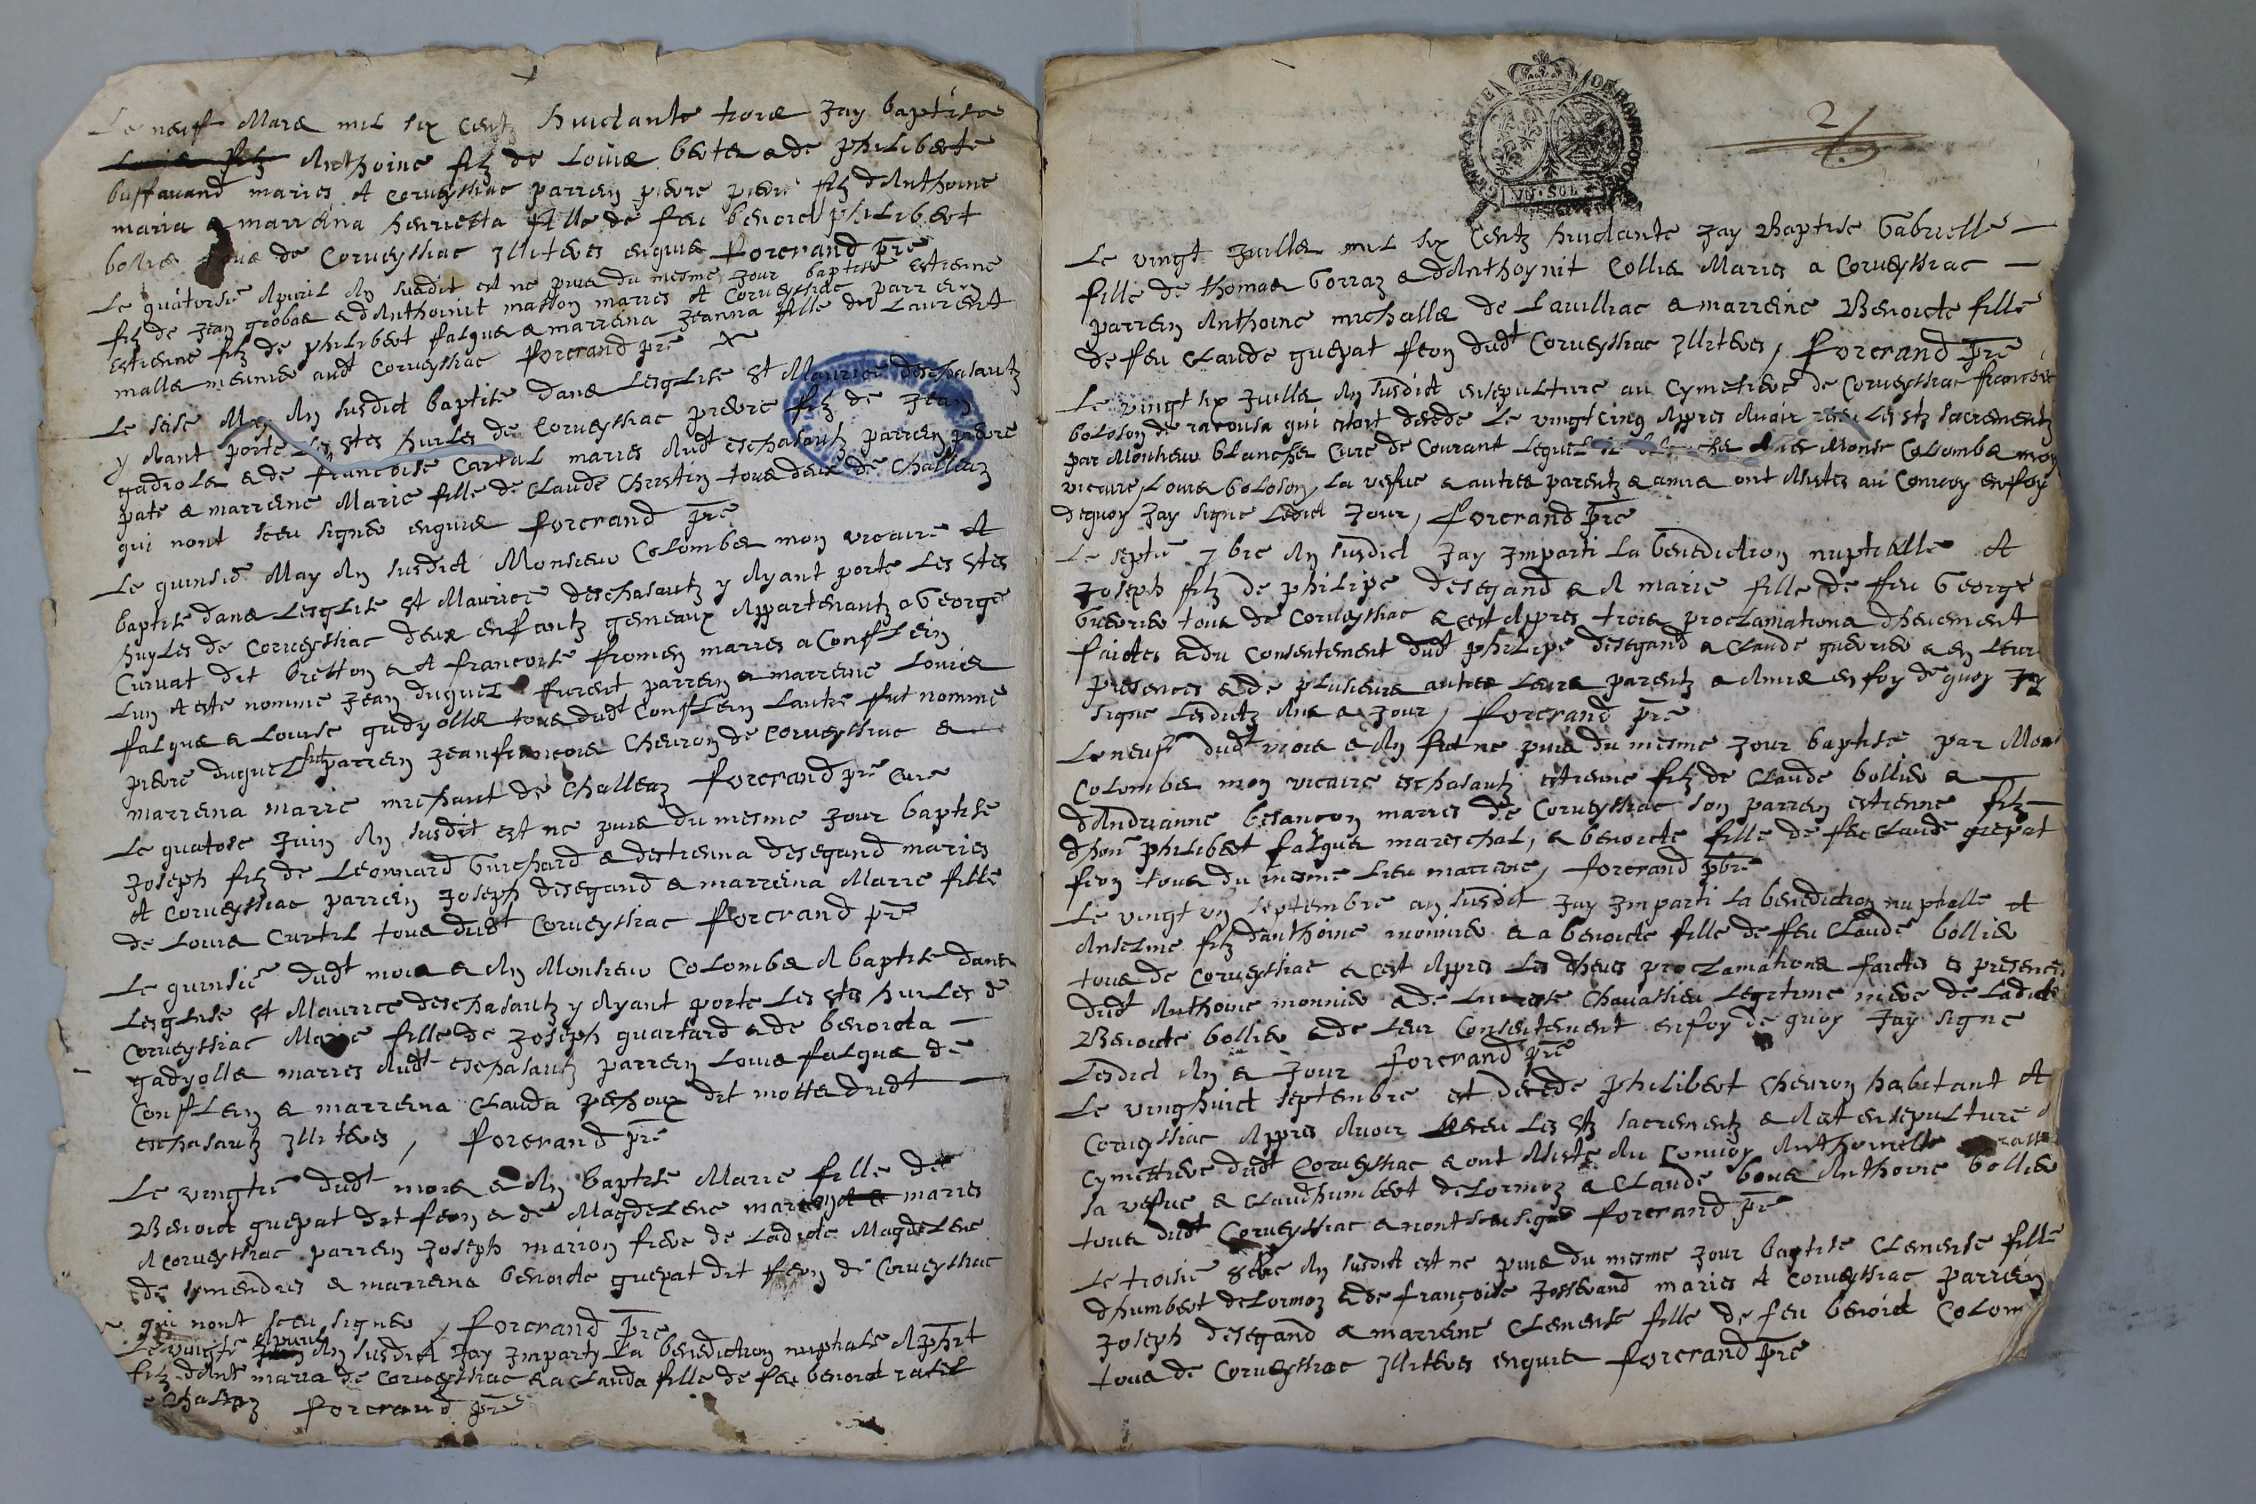 Le neuf Mars mil six centz huictante trois Jay baptise
Anthoine filz de Louis berter & de philiberte
buffauand maries A Corueyssiac parrein pierre filz dAnthoine
maria & marreina henrietta fille de feu benoict philibert
bollie tous de Corueyssiac Illiteres enquis forcrand pre
Le quatorsie Apuril An susdit est ne puis du mesme Jour baptise estienne
filz de Jean grobas & dAnthoinit masson maries A Corueyssiac parrein
estienne filz de philibert falque & marreina Jeanna fille de Laurent
malla meunier audt Corueyssiac forcrand pre
Le seise May An susdict baptise dans Lesglise St Maurice deschasautz
y Aiant porte Les stes huiles de Corueyssiac pierre filz de Jean
gadiola & de francoise Cartal maries Audt eschasautz parrein pierre
pate & marreine Marie fille de Claude Chrestin tous deux de Challeaz
qui nont sceu signer enquis forcrand pre
Le quinsie May An susdict Monsieur Colomber mon vicaire A
baptise dans Lesglise St Maurice deschasautz y Ayant porte Les Stes
huyles de Corueyssiac deux enfantz gemeaux Appartenantz a George
Curuat dit bretton & A francoise fromen maries a Confflein
Lun A este nomme Jean duquel furent parrein & marreine Louis
falque & Louise gudyolla tous dudt Confflein Lautre fut nomme
pierre duquel fut parrein Jeanfrancois Cheuron de Corueyssiac &
marreina marie michaut de Challeaz forcrand pre Cure
Le quatose Juin An susdit est ne puis du mesme Jour baptise
Joseph filz de Leonnard Guichard & destienna desegand maries
A Corueyssiac parrein Joseph desegand & marreina Marie fille
de Louis Curtil tous dudt Corueyssiac forcrand pre
Le quinsie dudt mois & An Monsieur Colomber A baptise dans
Lesglise St Maurice deschasautz y Ayant porte Les Stes huiles de
Corueyssiac Marie fille de Joseph quartard & de benoicta
gadyolla maries Audt eschasautz parrein Louis falque de
Confflein & marreina Clauda pehoux dit motta dudt
eschasautz Illiteres, forcrand pre
Le vingtie dudt mois & An baptise Marie fille de
Benoict guepat dit feon & de Magdelene maries
A Corueyssiac parrein Joseph marion frere de Ladicte Magdelene
de symendres & marreina benoicte guepat dit feon de Corueyssiac
qui nont sceu signer, forcrand pre
Apuril
Le An susdict Jay Imparty La benediction nuptiale A phirt
filz dAnt maria de Corueyssiac & a Clauda fille de feu benoict
forcrand pre
GENERALITE DE BOURGOGNE
VN SOL
2
Le vingt Juillet mil six Centz huictante Jay Baptise Gabrielle
fille de thomas Gorraz & dAnthoynit Collia Maries a Corueyssiac
parrein Anthoine michalla de Lauilliac & marreine Benoicte fille
de feu Claude guepat feon dudt Corueyssiac Illiteres, forcrand pre
Le vingt six Juillet An susdict ensepulture au Cymetiere de Corueyssiac francois
boloson de racousa qui estoit decede Le vingt cinq Appres Auoir receu Les stz sacrementz
par Monsieur blanchet Cure de Courant Lequel Monsr Colomber mon
vicaire, Louis boloson, La vefue & autres parentz & amis ont Assistes au Conuoy enfoy
dequoy Jay signe Ledict Jour, forcrand pre
Le septie 7bre An susdict Jay Imparti La benediction nuptialle A
Joseph filz de philipe desegand & A marie fille de ffeu George
Guerrier tous de Corueyssiac & cest Appres trois proclamations dheuement
faictes & du Consentement dudt philipe desegand & Claude guerrier & en Leur
presences & de plusieurs autres Leurs parentz & Amis en foy de quoy Jay
signe Lesdictz Ans & Jour, forcrand pre
Le neuf dudt mois & An fut ne puis du mesme Jour baptise par Monsr
Colomber mon vicaire eschasautz estienne filz de Claude bollier &
dAndrianne besancon maries de Corueyssiac son parrein estienne filz
dhon philibert falque mareschal, & benoicte fille de feu Claude guepat
feon tous du mesme Lieu marreine, forcrand pbre
Le vingt vn septembre an susdit Jay Imparti La benediction nuptialle A
Anselme filz danthoine monnier & a benoicte fille de ffeu Claude bollier
tous de Corueyssiac & cest Appres Les dheues proclamations faictes es presences
dudt Anthoine monnier & de Lucresse Chauassieu Legitime mere de Ladicte
Benoicte bollier & de Leur Consentement enfoy de quoy Jay signe
Lesdict An & Jour forcrand pre
Le vinghuict septembre est decede philibert Cheuron habitant A
Corueyssiac Appres Auoir receu Les stz sacrementz & A est ensepulture
Cymettiere dudt Corueyssiac & ont Assiste Au Conuoy Anthoinette
sa vefue & Claudhumbert deLormoz & Claude bous Anthoine bollier
tous dudt Corueyssiac & nont sceu signe forcrand pre
Le troisie 8bre An susdict est ne puis du mesme Jour baptise Clemense fille
dhumbert deLormoz & de françoise Josserand maries A Corueyssiac parrein
Joseph desegand & marreine Clemense fille de feu benoict Colom
tous de Corueyssiac Illiteres enquis forcrand pre